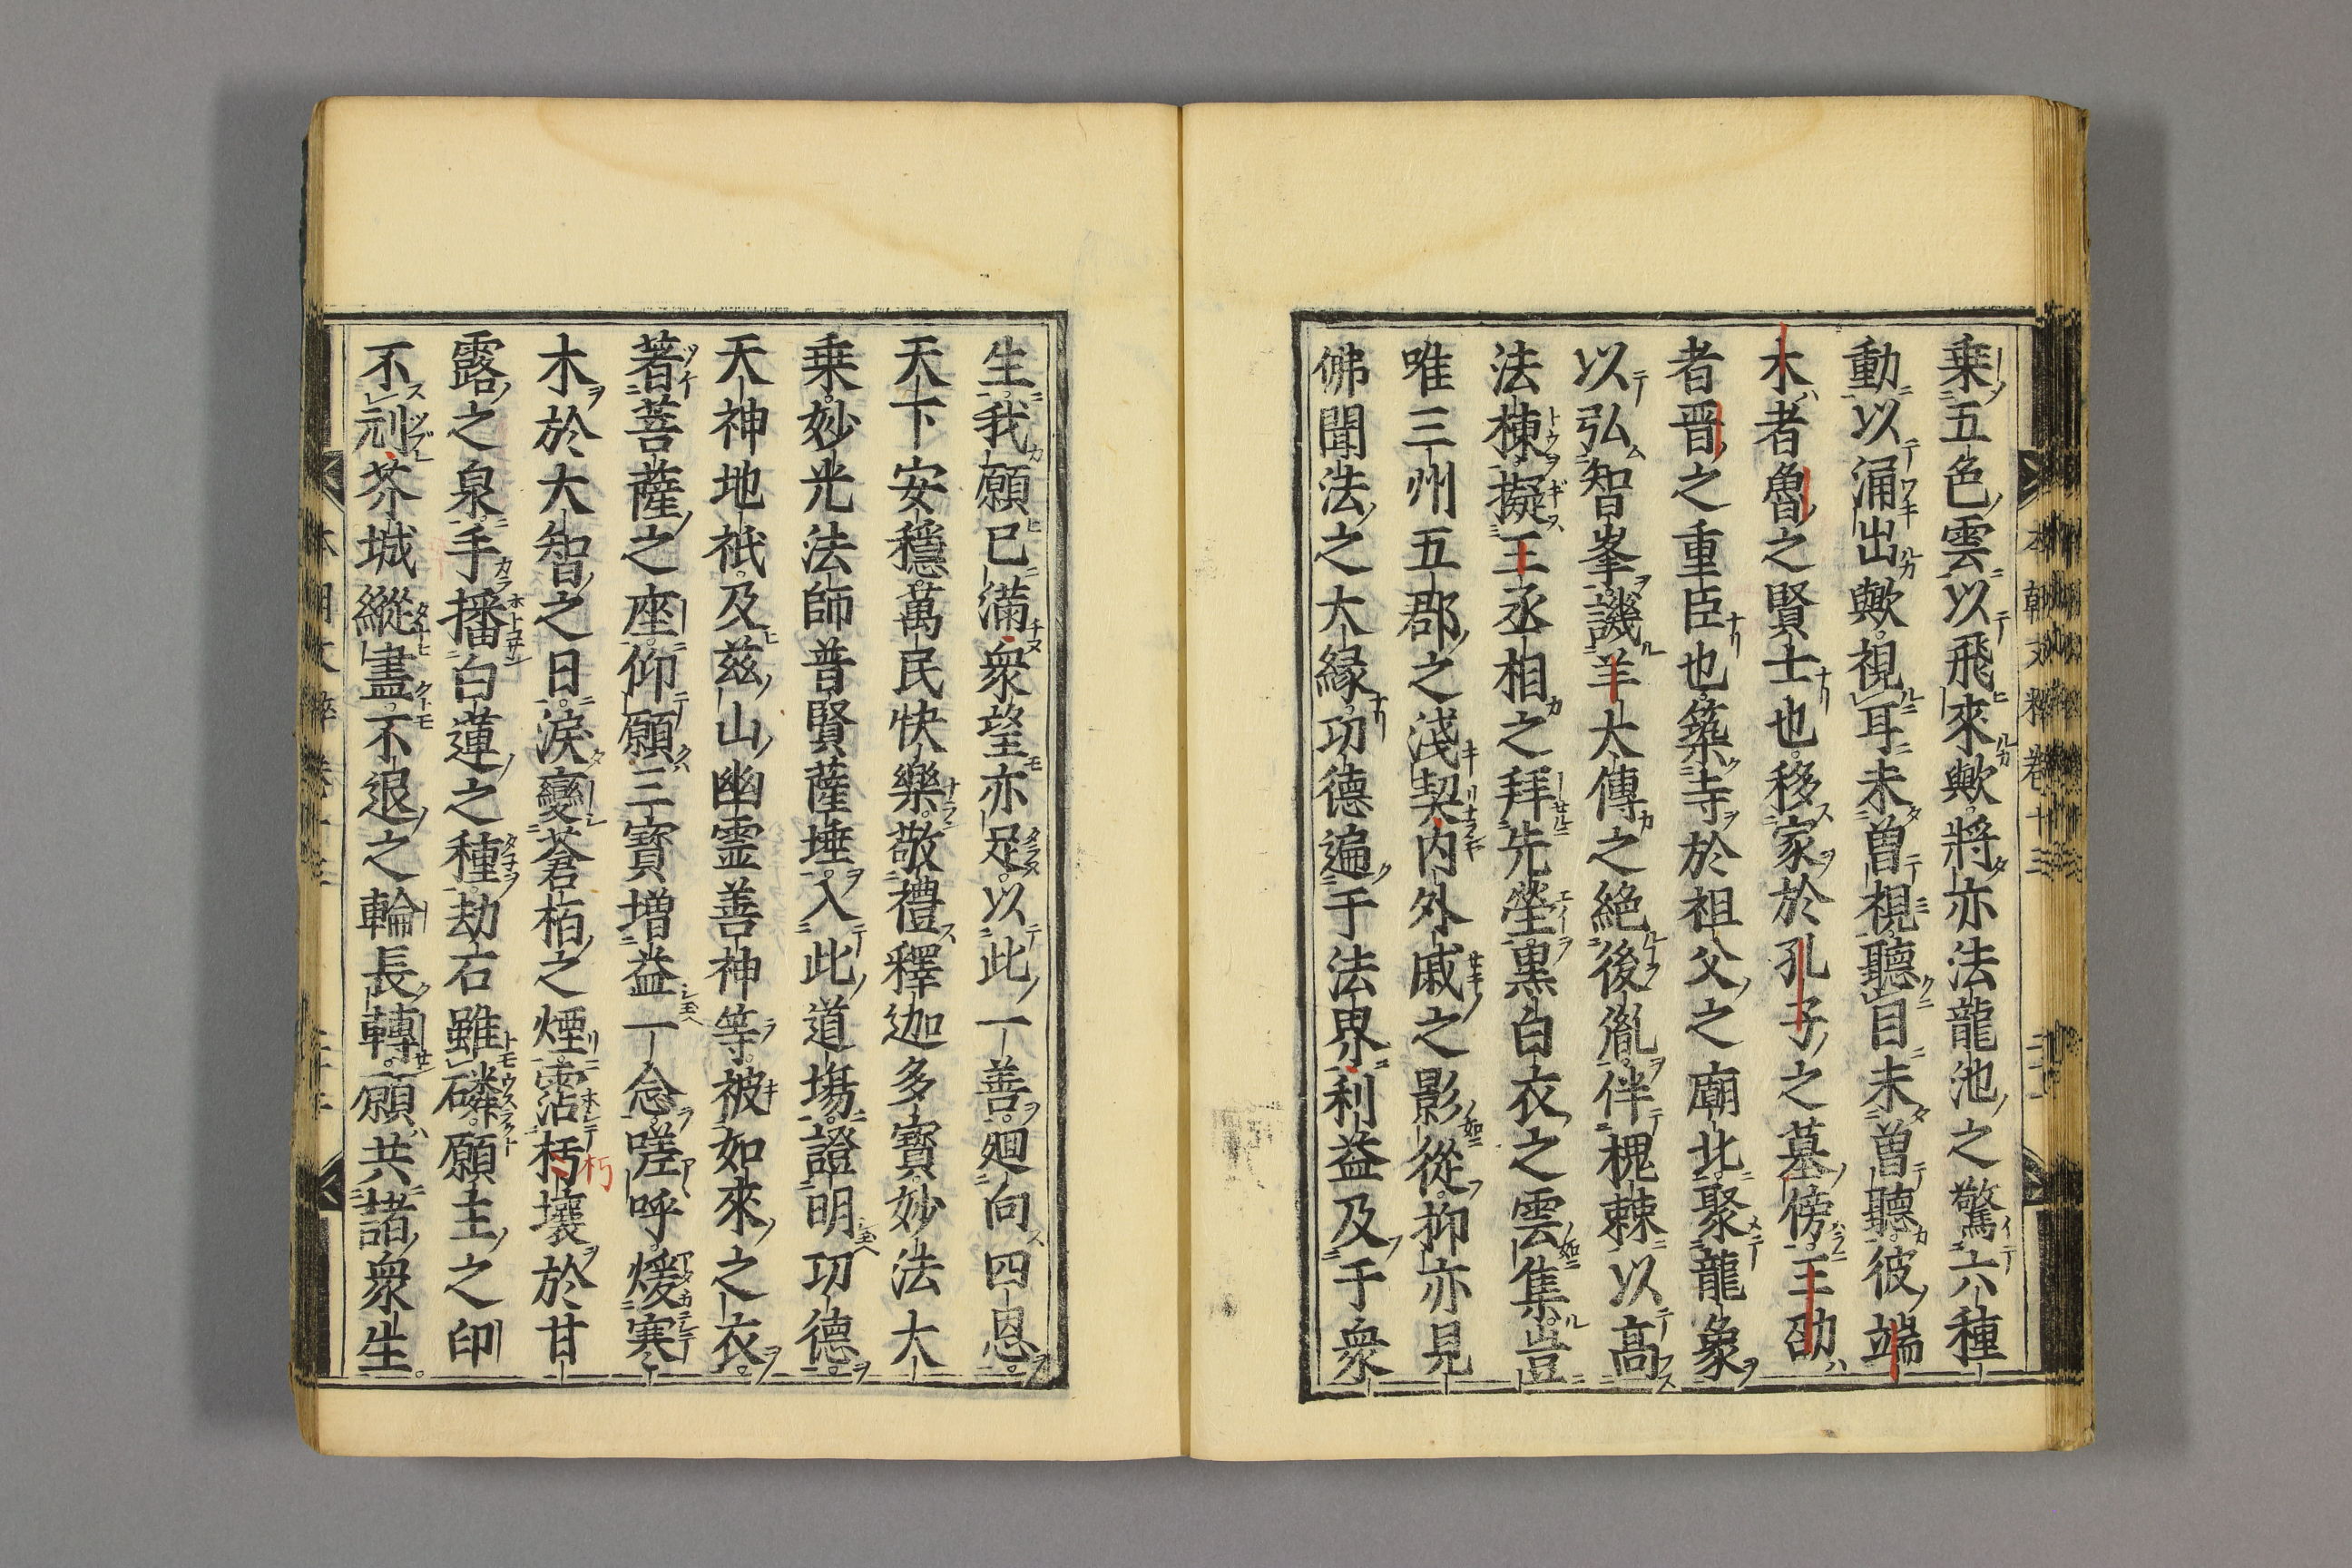 乗五色雲以飛來歟將亦法龍池之驚六種
動以涌出歟視耳未曽視聽目未曽聽彼端
木者魯之賢士也移家於孔子之墓傍王劭
者晋之重臣也築寺於祖父之廟北聚龍象
以弘智峯譏羊太傅之絶後胤伴槐棘以高
法棟擬王丞相之拜先塋黒白衣之雲集豈
唯三州五郡之淺契内外戚之影從抑亦見
佛聞法之大縁功德遍于法界利益及于衆
生我願已滿衆望亦足以此一善廻向四恩
天下安穩萬民快樂敬禮釋迦多寳妙法大
乗妙光法師普賢薩埵入此道塲證明功德
天神地祇及茲山幽霊善神等被如來之衣
著菩薩之座仰願三寳増益一念嗟呼煖寒
木於大智之日涙變蒼栢之煙霑朽壤於甘
露之泉手播白蓮之種劫石雖磷願主之印
不刓芥城縱盡不退之輪長轉願共諸衆生